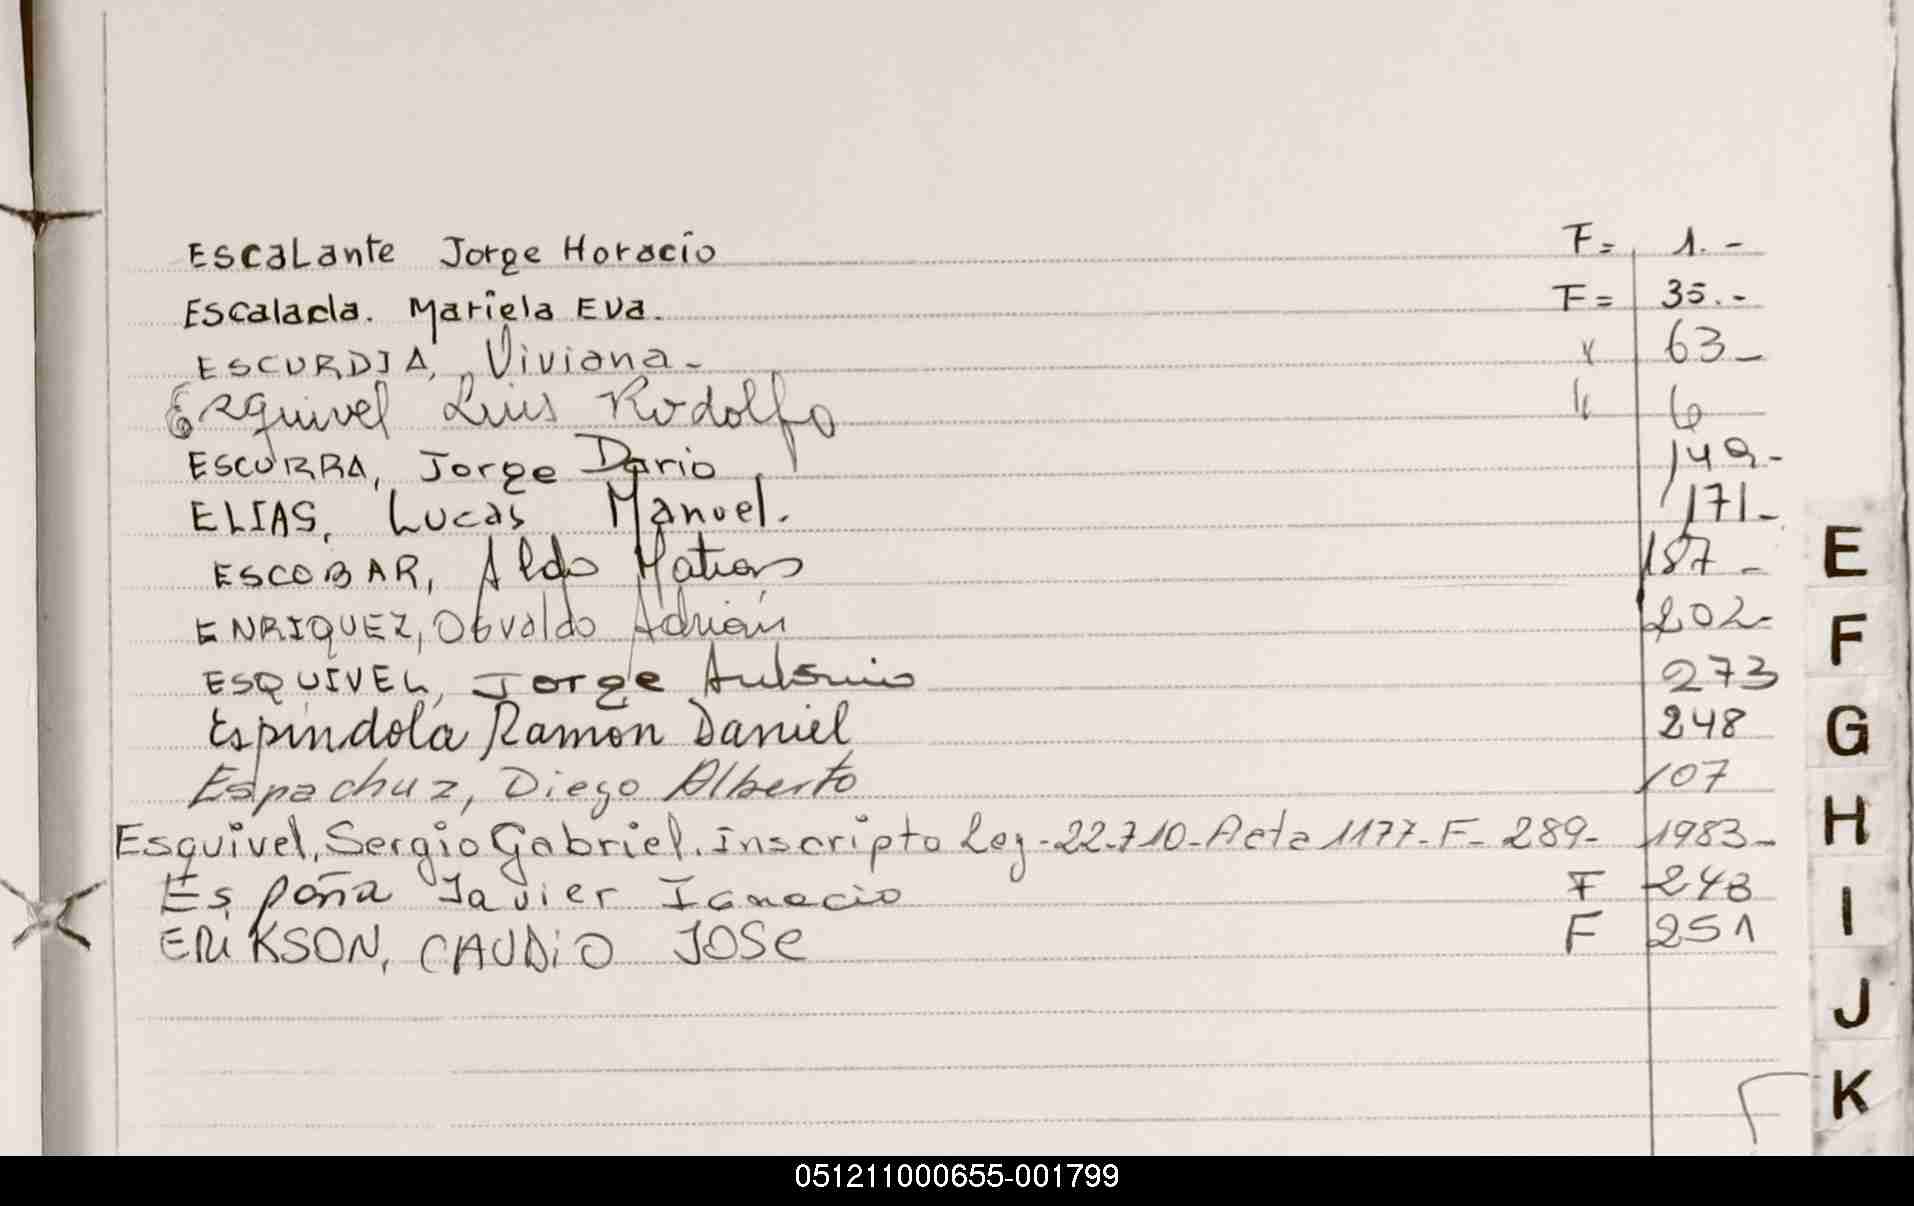 Escalante Jorge Horacio F= 1.-
Escalada. Mariela Eva. F= 35.-
ESCURDIA, Viviana- " 63-
Ezquivel Luis Rodolfo " 6
ESCURRA, Jorge Dario 149-
ELIAS, Lucas Manuel. 171-
ESCOBAR, Aldo Matias 187-
ENRIQUEZ, Osvaldo Adrián 202-
ESQUIVEL, Jorge Antonio 273
Espíndola Ramon Daniel 248
Espachuz, Diego Alberto 107
Esquivel, Sergio Gabriel. Inscripto Leg-22.710-Acta 1177-F-289- 1983-
España Javier Ignacio F 248
ERIKSON, CAUDIO JOSe F 251
E
F
G
H
I
J
K
051211000655-001799